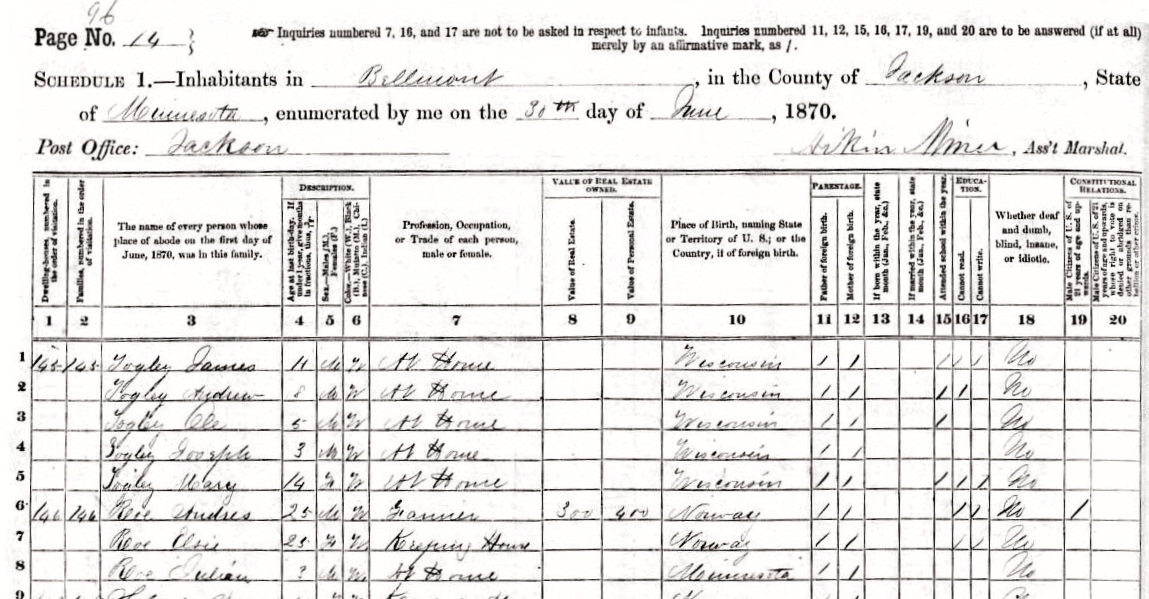 96
Page No. 14 }
☞ Inquiries numbered 7, 16, and 17 are not to be asked in respect to infants. Inquiries numbered 11, 12, 15, 16, 17, 19, and 20 are to be answered (if at all)
merely by an affirmative mark, as /.
SCHEDULE 1.—Inhabitants in Bellmont, in the County of Jackson, State
of Minnesota, enumerated by me on the 30th day of June, 1870.
Post Office: Jackson Aikin Miner, Ass't Marshal.
DESCRIPTION. VALUE OF REAL ESTATE OWNED. PARENTAGE. EDUCATION. CONSTITUTIONAL RELATIONS.
Dwelling-houses, numbered in the order of visitation.
Families, numbered in the order of visitation.
The name of every person whose place of abode on the first day of June, 1870, was in this family.
Age at last birth-day. If under 1 year, give months in fractions, thus,
Sex.—Males (M.), Females (F.)
Color.—White (W.), Black (B.), Mulatto (M.), Chinese (C.), Indian (I.)
Profession, Occupation, or Trade of each person, male or female.
Value of Real Estate.
Value of Personal Estate.
Place of Birth, naming State or Territory of U. S.; or the Country, if of foreign birth.
Father of foreign birth.
Mother of foreign birth.
If born within the year, state month (Jan., Feb., &c.)
If married within the year, state month (Jan., Feb., &c.)
Attended school within the year.
Cannot read.
Cannot write.
Whether deaf and dumb, blind, insane, or idiotic.
Male Citizens of U. S. of 21 years of age and upwards.
Male Citizens of U. S. of 21 years of age and upwards, where right to vote is denied or abridged on other grounds than rebellion or other crime.
1 2 3 4 5 6 7 8 9 10 11 12 13 14 15 16 17 18 19 20
1 145 145 Togley James 11 M W At Home Wisconsin / / / / / No
2 Togley Andrew 8 M W At Home Wisconsin / / / / No
3 Togley Ole 5 M W At Home Wisconsin / / / No
4 Togley Joseph 3 M W At Home Wisconsin / / No
5 Togley Mary 14 F W At Home Wisconsin / / / / / No
6 146 146 Roe Andres 25 M W Farmer 300 400 Norway / / / / No /
7 Roe Elsie 25 F W Keeping House Norway / / / / No
8 Roe Julian 3 M W At Home Minnesota / / No
9